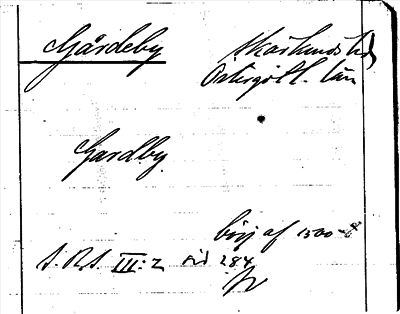 Gårdeby Skärkinds hd
Östergötl. län
Gardby.
börj af 1500-t
S. R. S. III: 2 sid 284